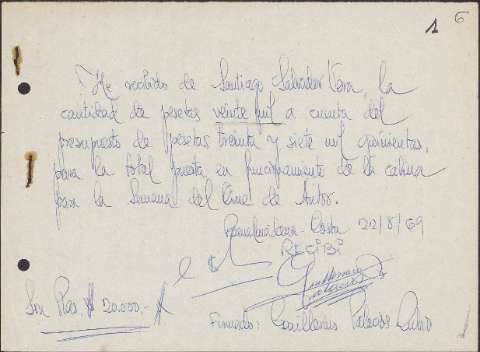 1 6
He recibido de Santiago Salvador Vera, la
cantidad de pesetas veinte mil a cuenta del
presupuesto de pesetas treinta y siete mil quinientas,
para la total puesta en funcionamiento de la cabina
para la Semana del Cine de Autor.
Benalmádena - Costa 22/8/69
RECIBÍ
Son Ptas. # 20.000.- #
Firmado: Guillermo Palacios